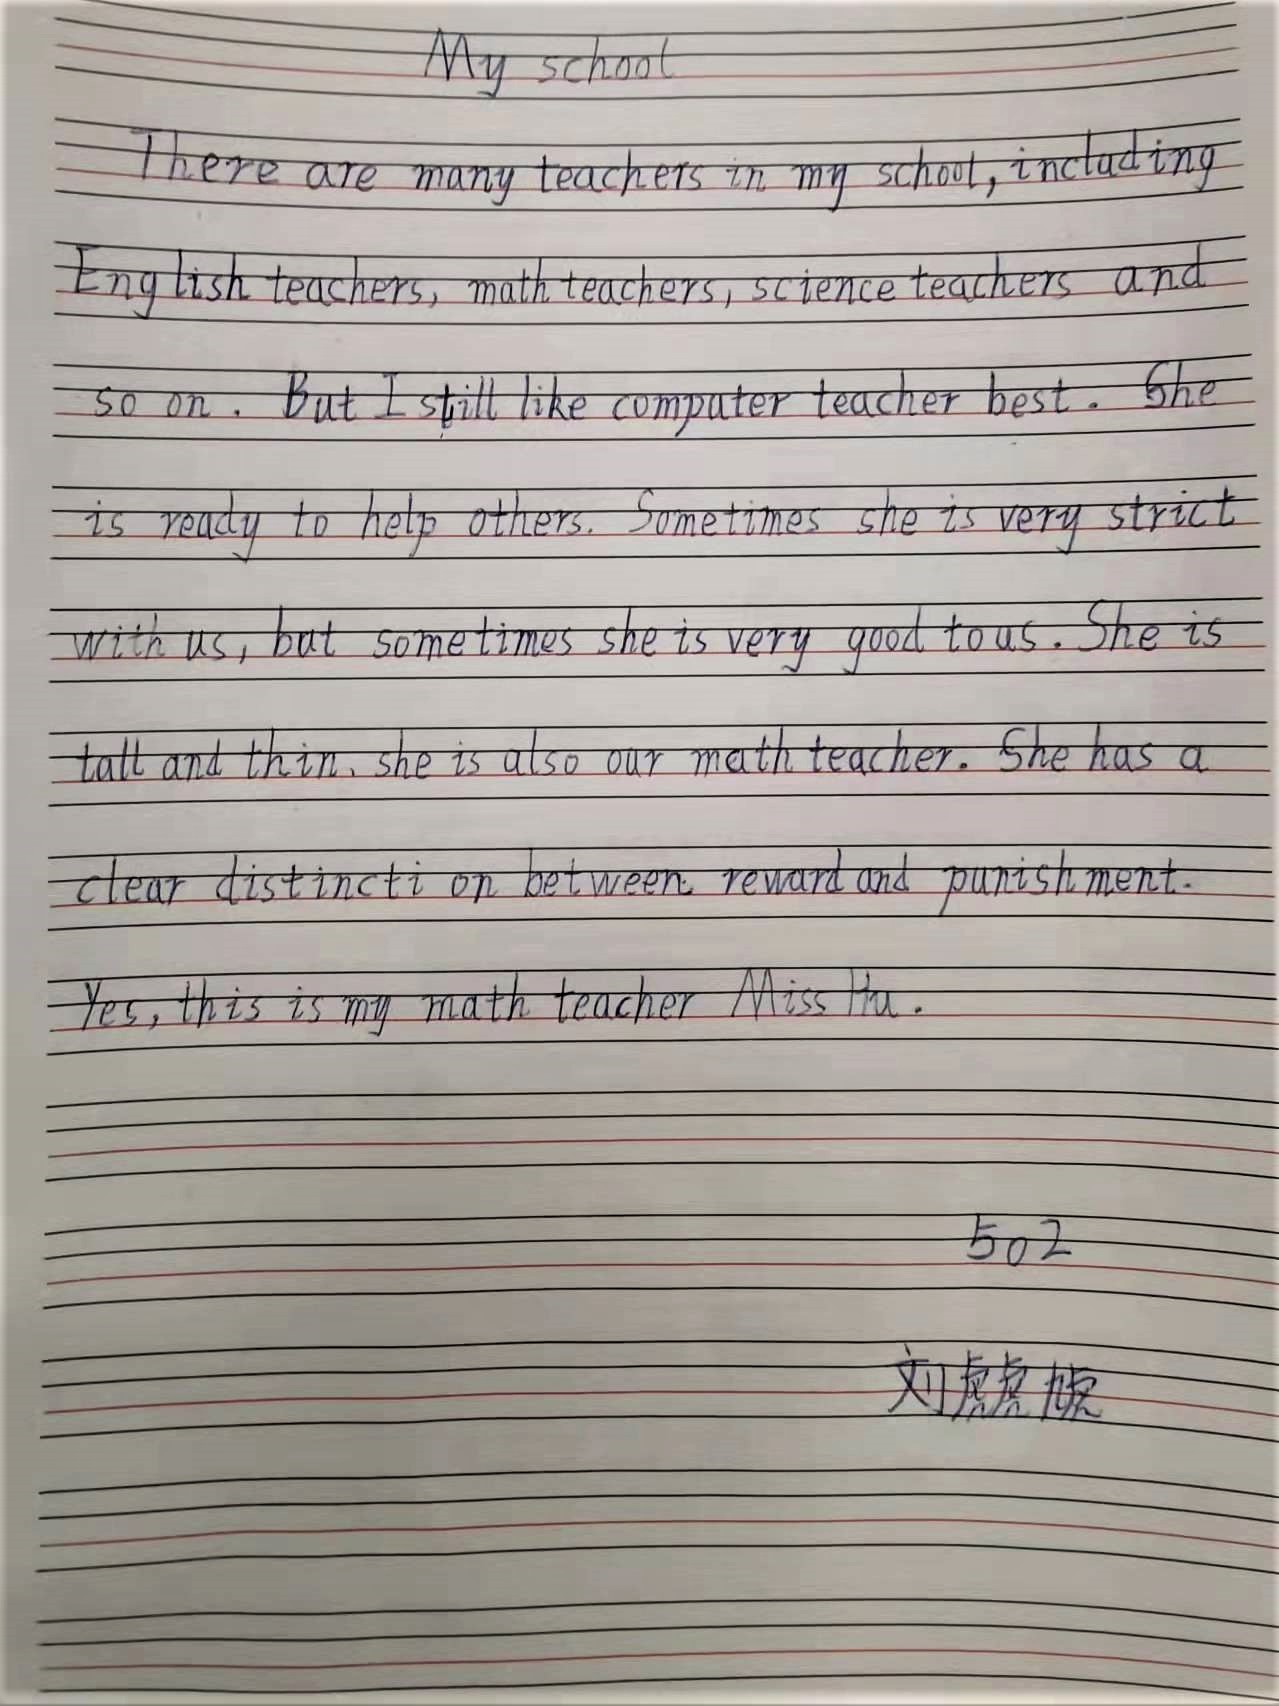 My school
There are many teachers in my school, including
English teachers, math teachers, science teachers and
so on. But I still like computer teacher best. She
is ready to help others. Sometimes she is very strict
with us, but sometimes she is very good to us. She is
tall and thin. she is also our math teacher. She has a
clear distincti on between reward and punishment.
Yes, this is my math teacher Miss Hu.
502
刘虤虓